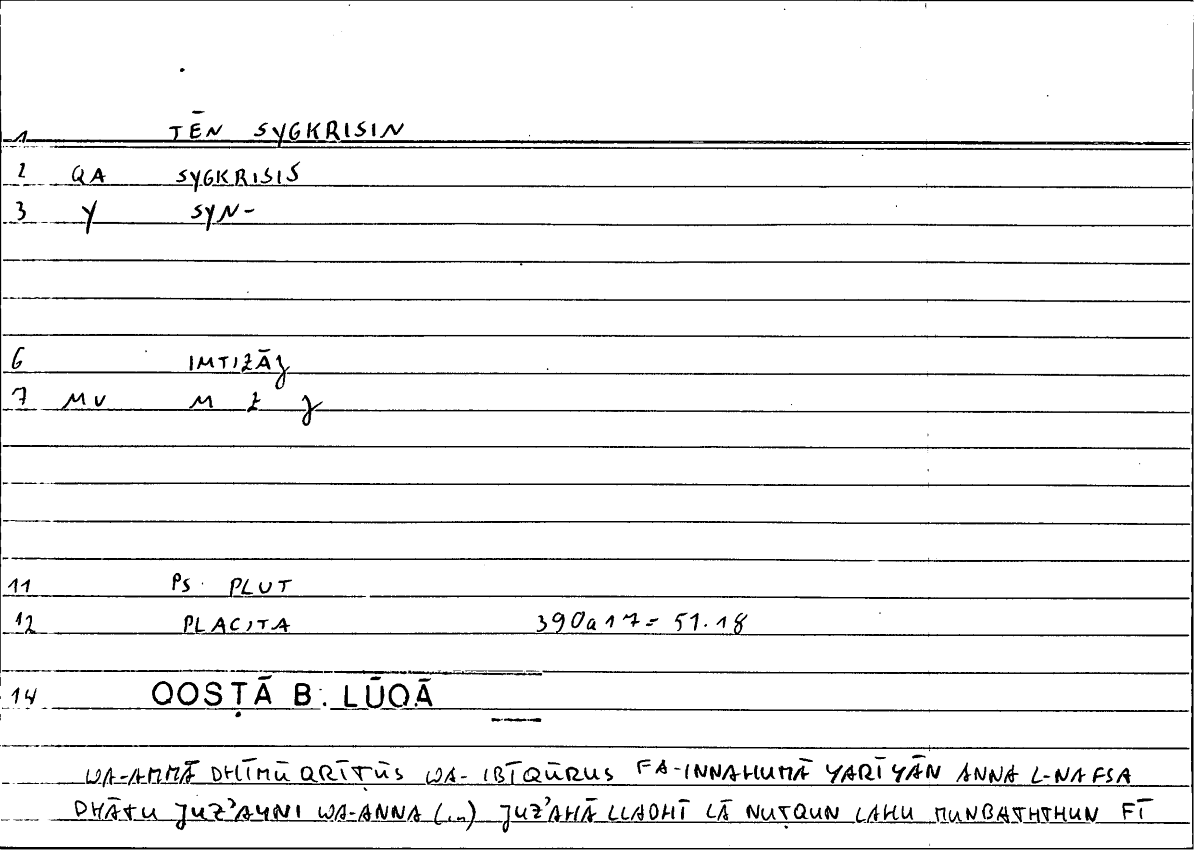 1 TĒN SYGKRISIN
2 QA SYGKRISIS
3 Y SYN-
6 IMTIZĀJ
7 MV M Z J
11 PS. PLUT
12 PLACITA 390a17 = 51.18
14 QOSṬĀ B. LŪQĀ
WA-AMMĀ DHĪMŪQRĪṬŪS WA-IBĪQŪRUS FA-INNAHUMĀ YARĪYĀN ANNA L-NAFSA
DHĀTU JUZ'AYNI WA-ANNA (...) JUZ'AHĀ LLADHĪ LĀ NUṬQUN LAHU MUNBATHTHUN FĪ